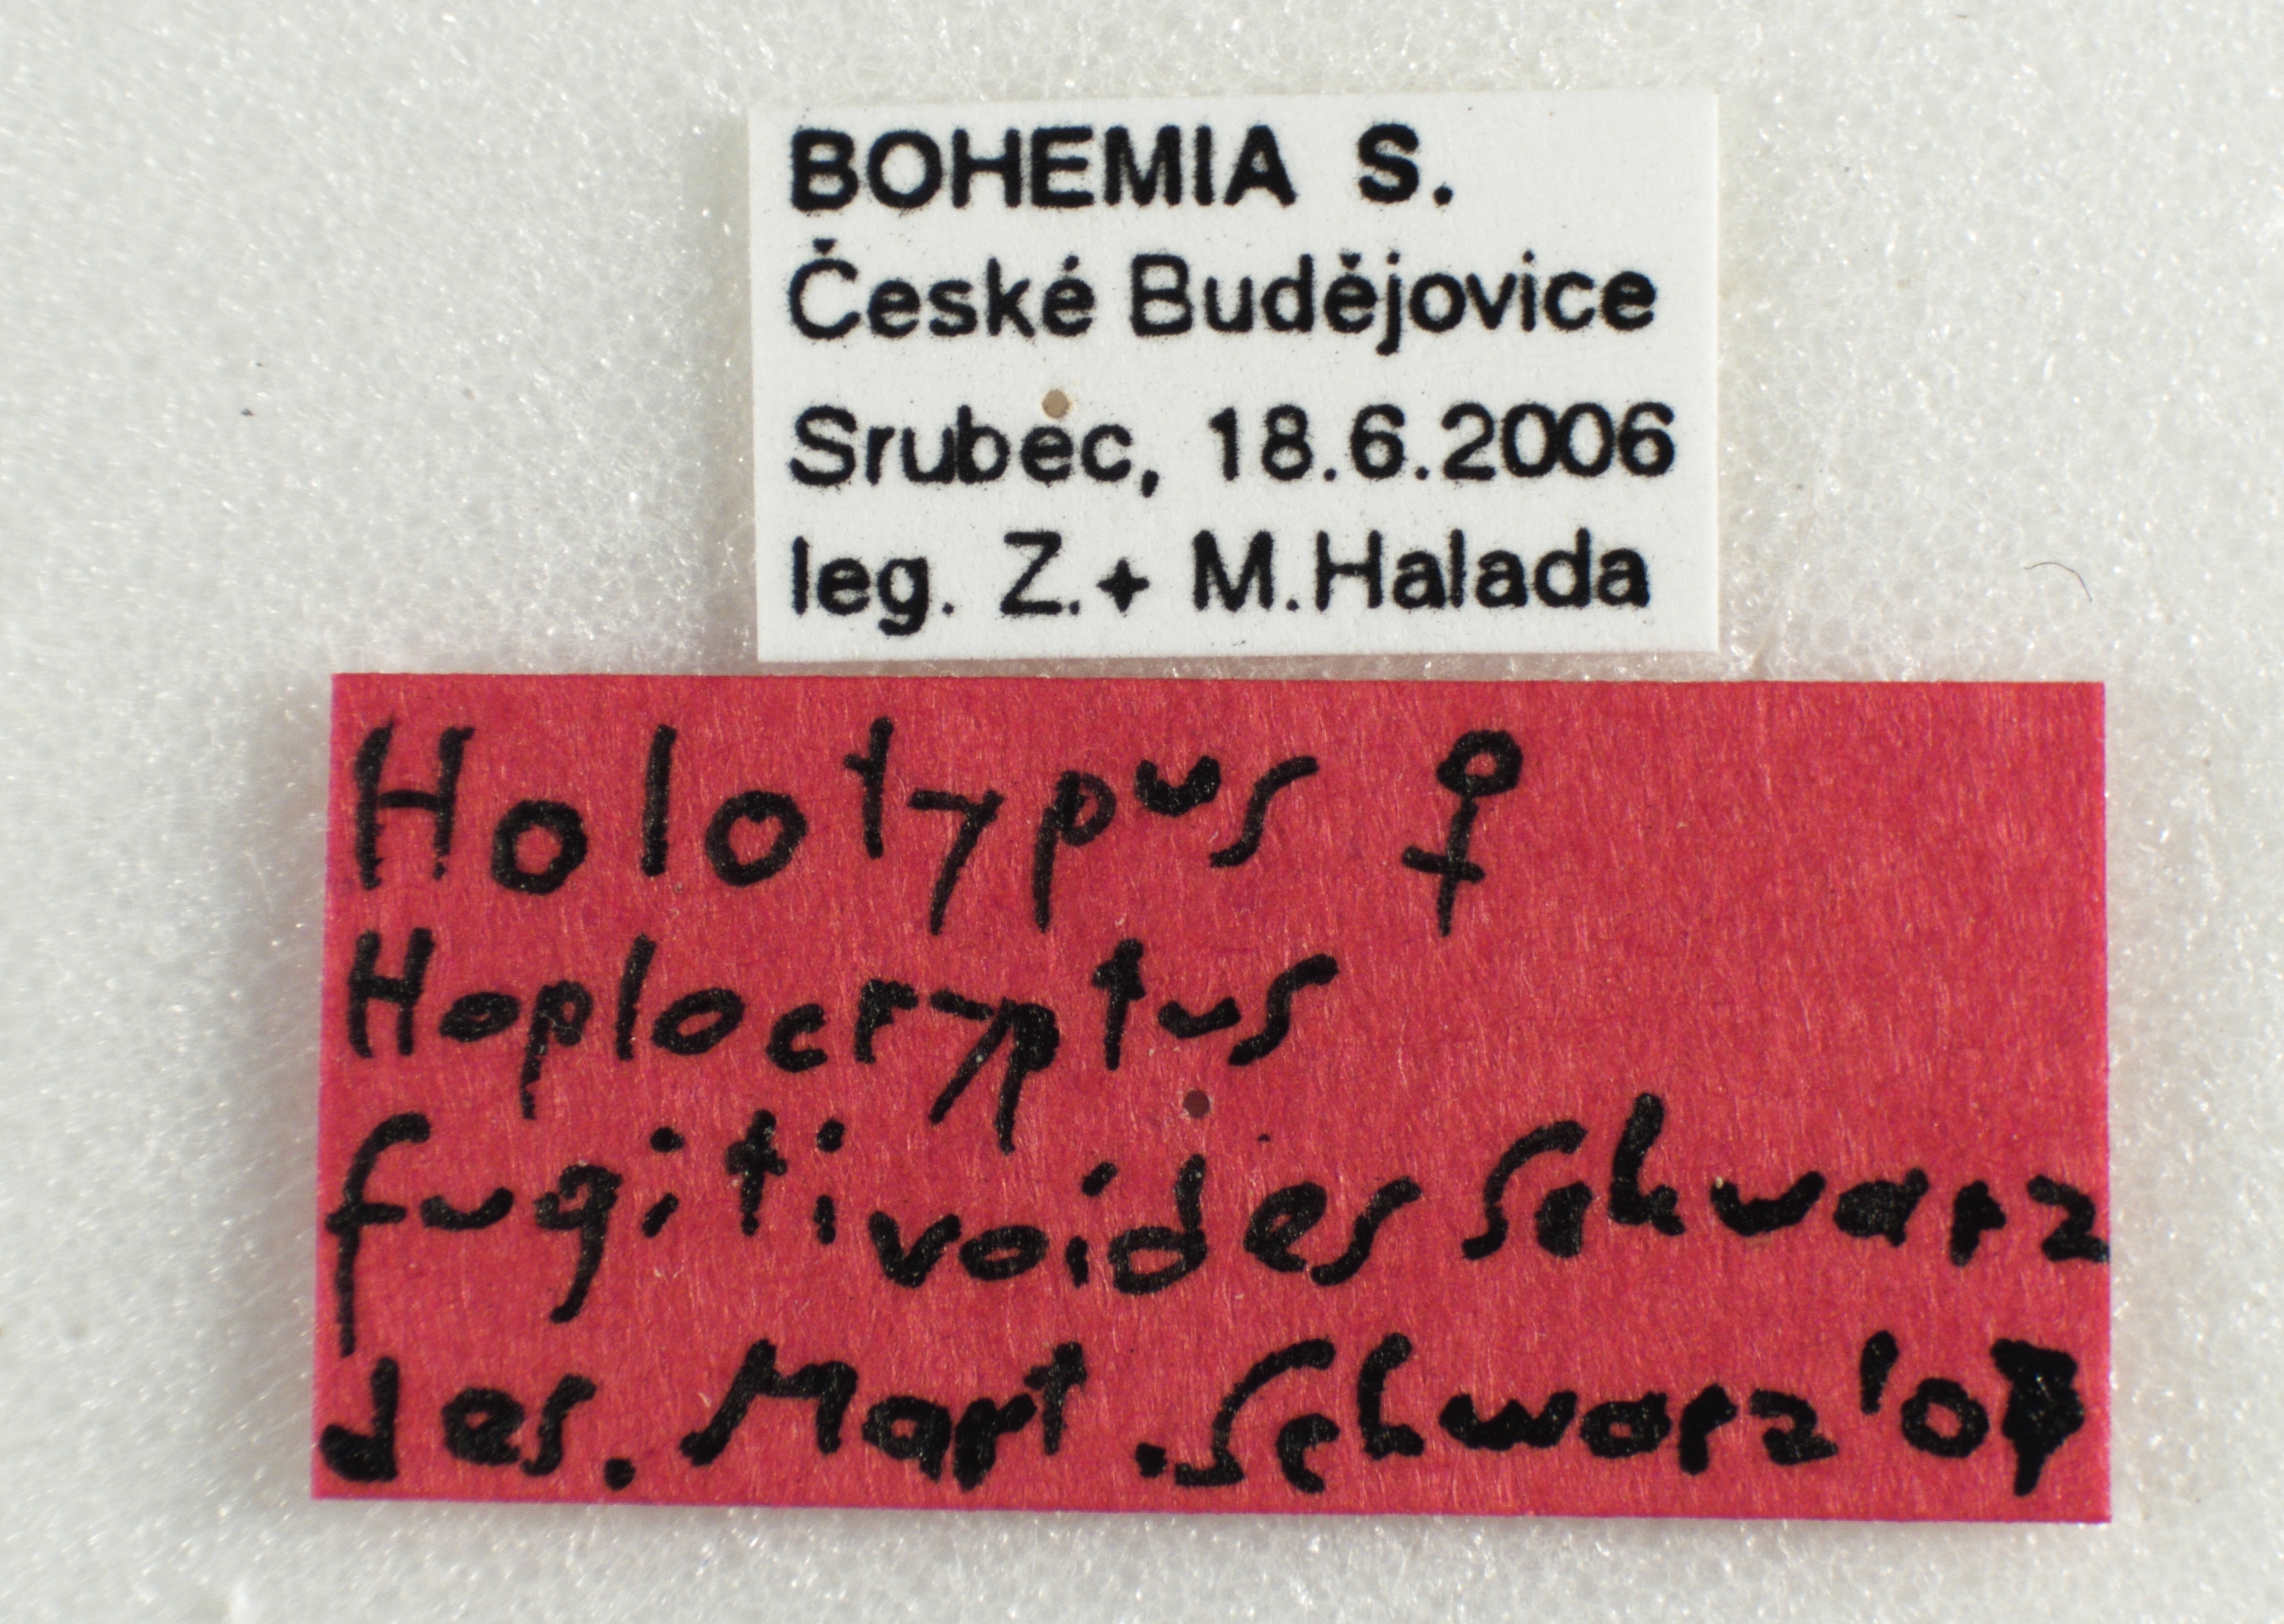 BOHEMIA S.
České Budějovice
Srubec, 18.6.2006
leg. Z.+ M.Halada
Holotypus ♀
Hoplocryptus
fugitivoides Schwarz
des. Mart. Schwarz '07